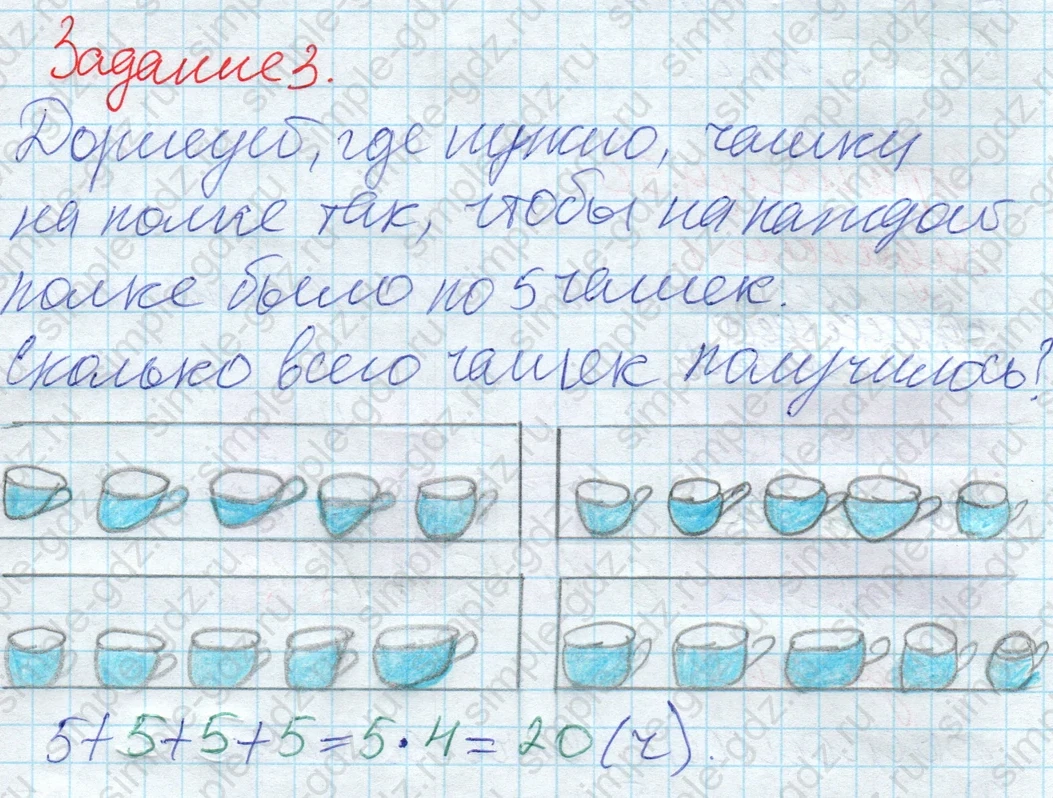 Задание 3.
Дорисуй, где нужно, чашки
на полке так, чтобы на каждой
полке было по 5 чашек.
Сколько всего чашек получилось?
5+5+5+5=5·4=20(ч).
simple-gdz.ru